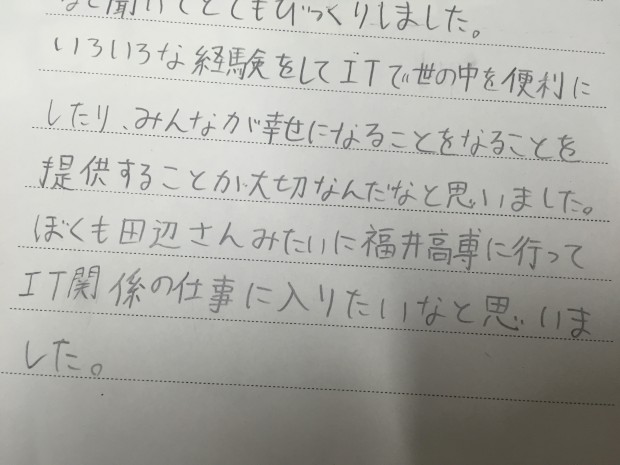 など聞いてとてもびっくりしました。
いろいろな経験をしてITで世の中を便利に
したり、みんなが幸せになることをなることを
提供することが大切なんだなと思いました。
ぼくも田辺さんみたいに福井高専に行って
IT関係の仕事に入りたいなと思いま
した。